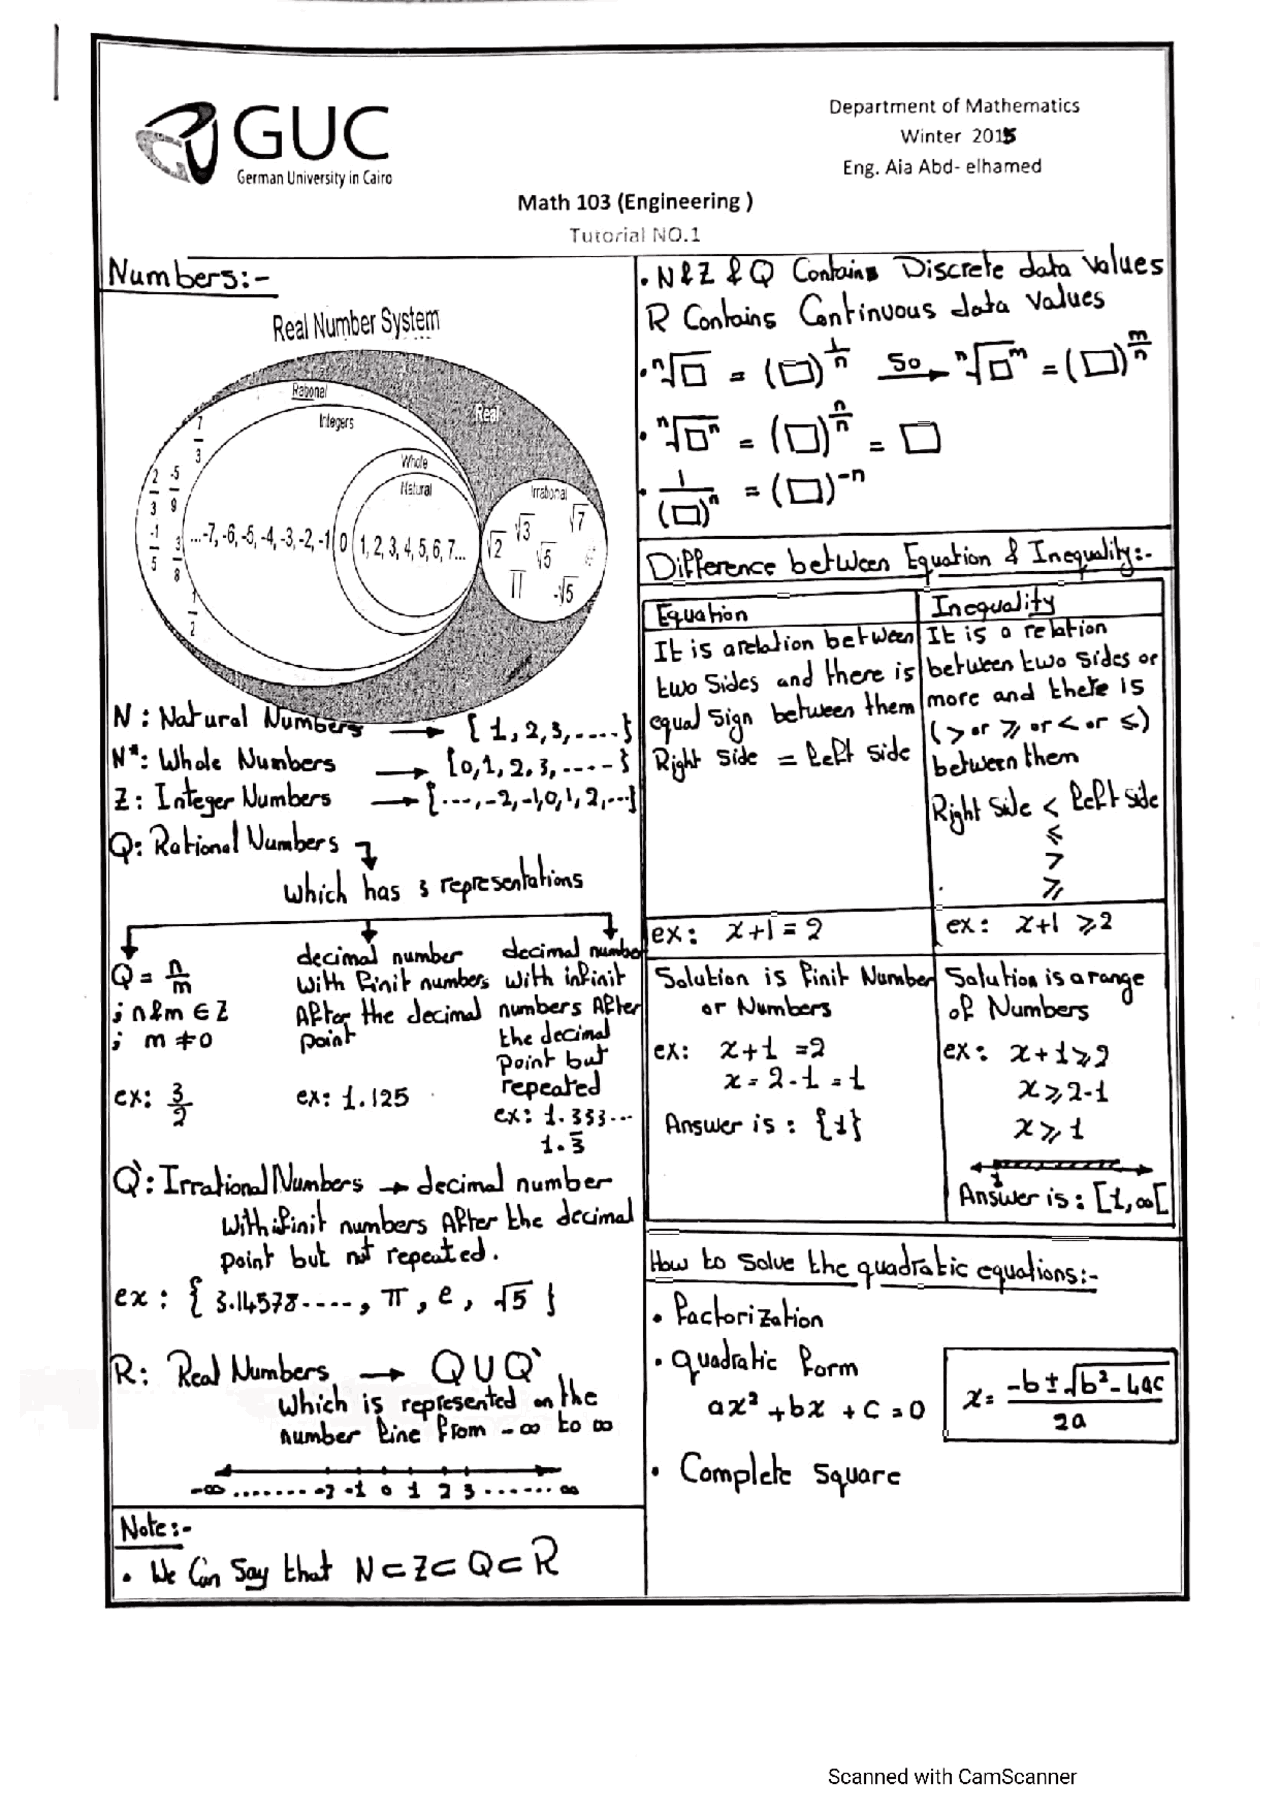 GUC
German University in Cairo
Department of Mathematics
Winter 2015
Eng. Aia Abd- elhamed
Math 103 (Engineering )
Tutorial NO.1
Numbers:-
Real Number System
Rational
Integers
Real
Whole
Natural
Irrational
7/3
2/3 -5/9
-1/5 3/8
1/2
...-7, -6, -5, -4, -3, -2, -1
0
1, 2, 3, 4, 5, 6, 7...
√2 √3 √7
√5
-√5
N : Natural Numbers → { 1, 2, 3, ..... }
N*: Whole Numbers → {0, 1, 2, 3, ..... }
Z : Integer Numbers → {...., -2, -1, 0, 1, 2, ...}
Q: Rational Numbers
which has 3 representations
Q = n/m
; n & m ∈ Z
; m ≠ 0
ex: 3/2
decimal number
with finit numbers
After the decimal
point
ex: 1.125
decimal number
with infinit
numbers After
the decimal
Point but
repeated
ex: 1.333...
1.3̅
Q`: Irrational Numbers → decimal number
with ifinit numbers After the decimal
point but not repeated.
ex : { 3.14578...., π, e, √5 }
R: Real Numbers → Q U Q`
which is represented on the
number line from -∞ to ∞
-∞ ........ -2 -1 0 1 2 3 ....... ∞
Note:-
• We Can Say that N ⊂ Z ⊂ Q ⊂ R
• N & Z & Q Contains Discrete data values
R Contains Continuous data values
• ⁿ√□ = (□)^(1/n) So → ⁿ√□^m = (□)^(m/n)
• ⁿ√□ⁿ = (□)^(n/n) = □
• 1/(□)ⁿ = (□)^-n
Difference between Equation & Inequality:-
Equation
It is a relation between
two sides and there is
equal sign between them
Right side = left side
Inequality
It is a relation
between two sides or
more and there is
(> or ⩾ or < or ≤)
between them
Right side < left side
≤
>
⩾
ex: x+1 = 2
ex: x+1 ⩾ 2
Solution is finit Number
or Numbers
ex: x+1 =2
x = 2-1 = 1
Answer is : {1}
Solution is a range
of Numbers
ex: x+1⩾2
x⩾2-1
x⩾1
1
Answer is : [1, ∞[
How to solve the quadratic equations:-
• factorization
• quadratic form
ax² + bx + c = 0
x = (-b ± √(b² - 4ac))/2a
• Complete square
Scanned with CamScanner